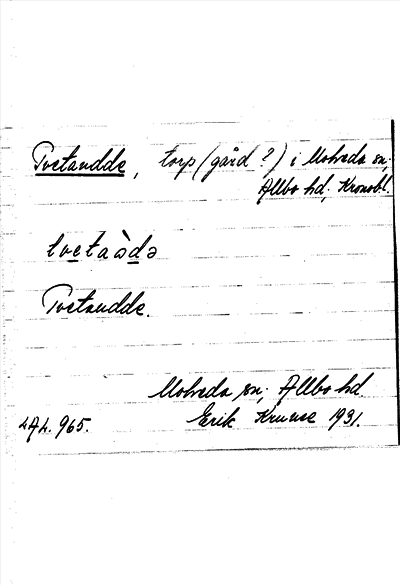 Tvetaudde, torp (gård?) i Moheda sn,
Allbo hd, Kronobl.
tvetaòdə
Tvetaudde.
Moheda sn, Allbo hd.
LAL. 965. Erik Kruuse 1931.